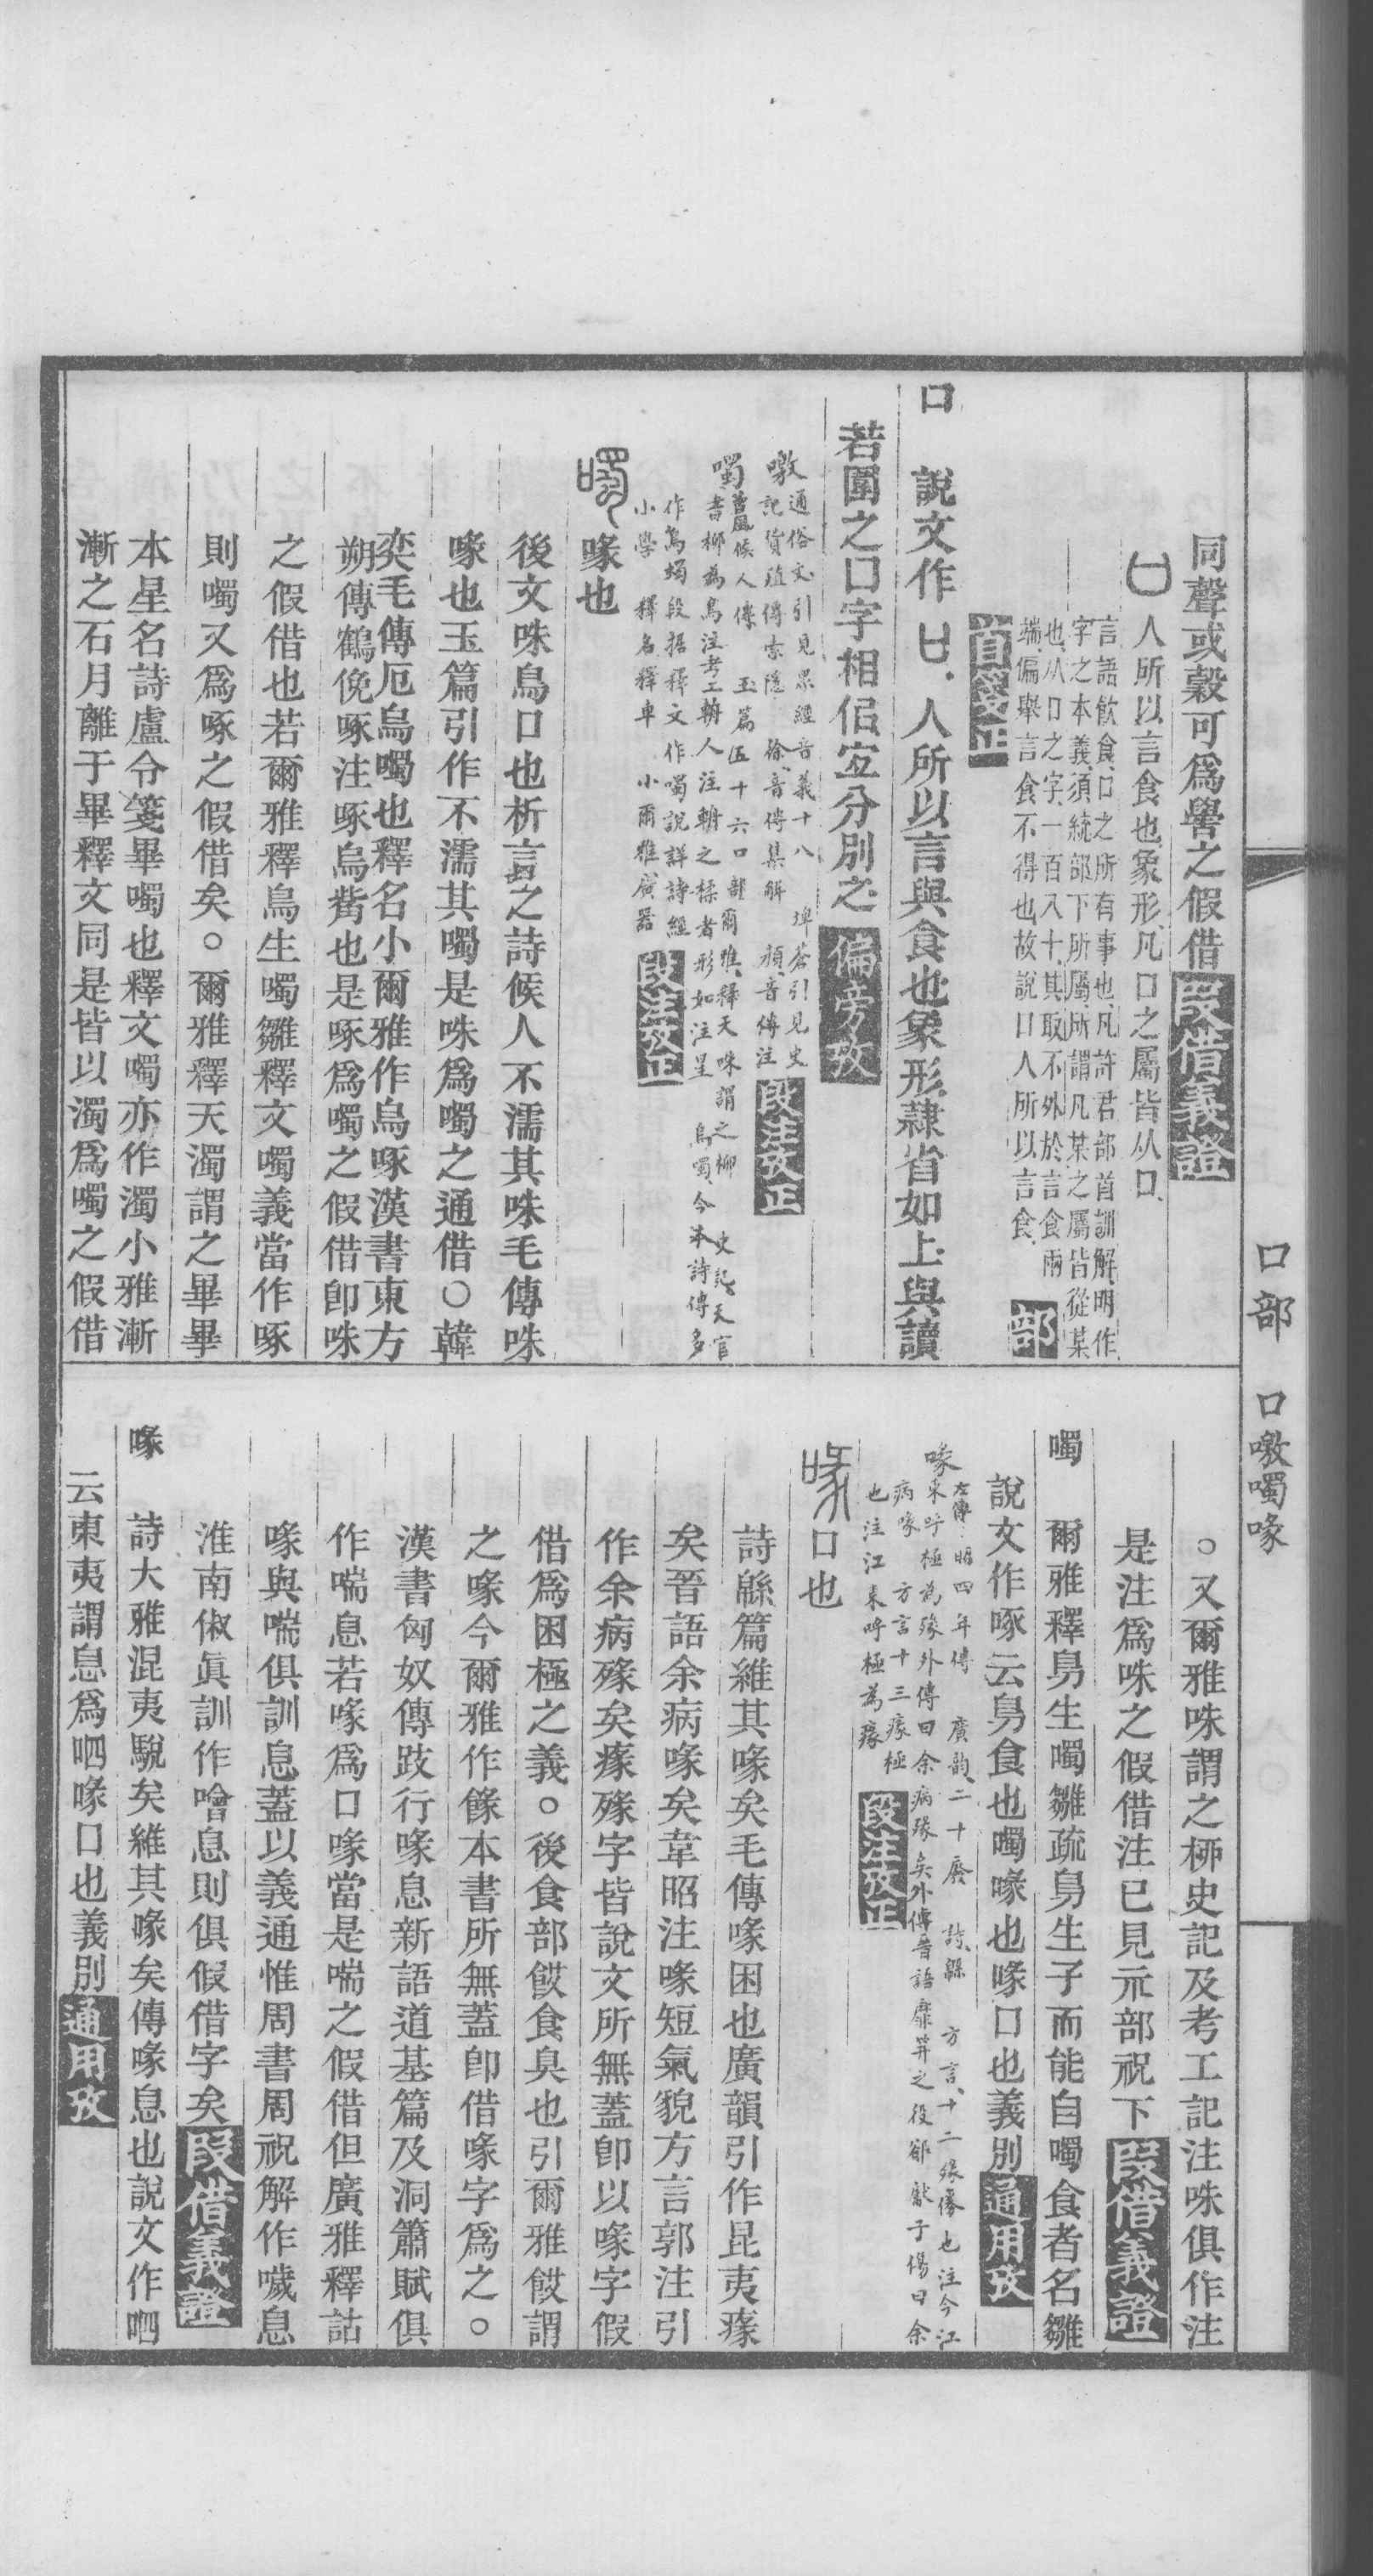 同聲或穀可爲嚳之假借叚借義證
人所以言食也象形凡口之屬皆从口
言語飲食口之所有事也凡許君部首訓解明作
字之本義須統部下所屬所謂凡某之屬皆從某
也从口之字一百八十其取不外於言食兩
端偏舉言食不得也故說口人所以言食
部首箋正
口　說文作口人所以言與食也象形隸省如上與讀
若圍之囗字相侶宐分別之偏旁攷
噭通俗文引見眾經音義十八　埤蒼引見史
記貨殖傳索隱　徐音傳集解　頑音傳注段注攷正
噣曹風候人傳　玉篇五十六口部爾雅釋天咮謂之柳　史記天官
書柳為鳥注考工輈人注輈之揉者形如注星　鳥噣今本詩傳多
作鳥蠋段據釋文作噣說詳詩經
小學　釋名釋車　小爾雅廣器段注攷正
噣　喙也
後文咮鳥口也析言之詩候人不濡其咮毛傳咮
喙也玉篇引作不濡其噣是咮爲噣之通借○韓
奕毛傳厄烏噣也釋名小爾雅作烏啄漢書東方
朔傳鶴俛啄注啄鳥觜也是啄爲噣之假借卽咮
之假借也若爾雅釋鳥生噣雛釋文噣義當作啄
則噣又爲啄之假借矣○爾雅釋天濁謂之畢畢
本星名詩盧令箋畢噣也釋文噣亦作濁小雅漸
漸之石月離于畢釋文同是皆以濁爲噣之假借
口部　口噭噣喙
○又爾雅咮謂之桺史記及考工記注咮俱作注
是注爲咮之假借注已見元部祝下叚借義證
噣　爾雅釋鳥生噣雛疏鳥生子而能自噣食者名雛
說文作啄云鳥食也噣喙也喙口也義別通用攷
喙左傳昭四年傳　廣韵二十廢　詩緜　方言十二喙倦也注今江
東呼極為喙外傳曰余病喙矣外傳晉語靡笄之役郤獻子傷曰余
病喙　方言十三瘃極
也注江東呼極為瘃段注攷正
喙　口也
詩緜篇維其喙矣毛傳喙困也廣韻引作昆夷瘃
矣晉語余病喙矣韋昭注喙短氣貌方言郭注引
作余病殩矣瘃殩字皆說文所無蓋卽以喙字假
借爲困極之義○後食部餀食臭也引爾雅餀謂
之喙今爾雅作餯本書所無蓋卽借喙字爲之○
漢書匈奴傳跂行喙息新語道基篇及洞簫賦俱
作喘息若喙爲口喙當是喘之假借但廣雅釋詁
喙與喘俱訓息蓋以義通惟周書周祝解作噦息
淮南俶眞訓作噲息則俱假借字矣叚借義證
喙　詩大雅混夷駾矣維其喙矣傳喙息也說文作呬
云東夷謂息爲呬喙口也義別通用攷